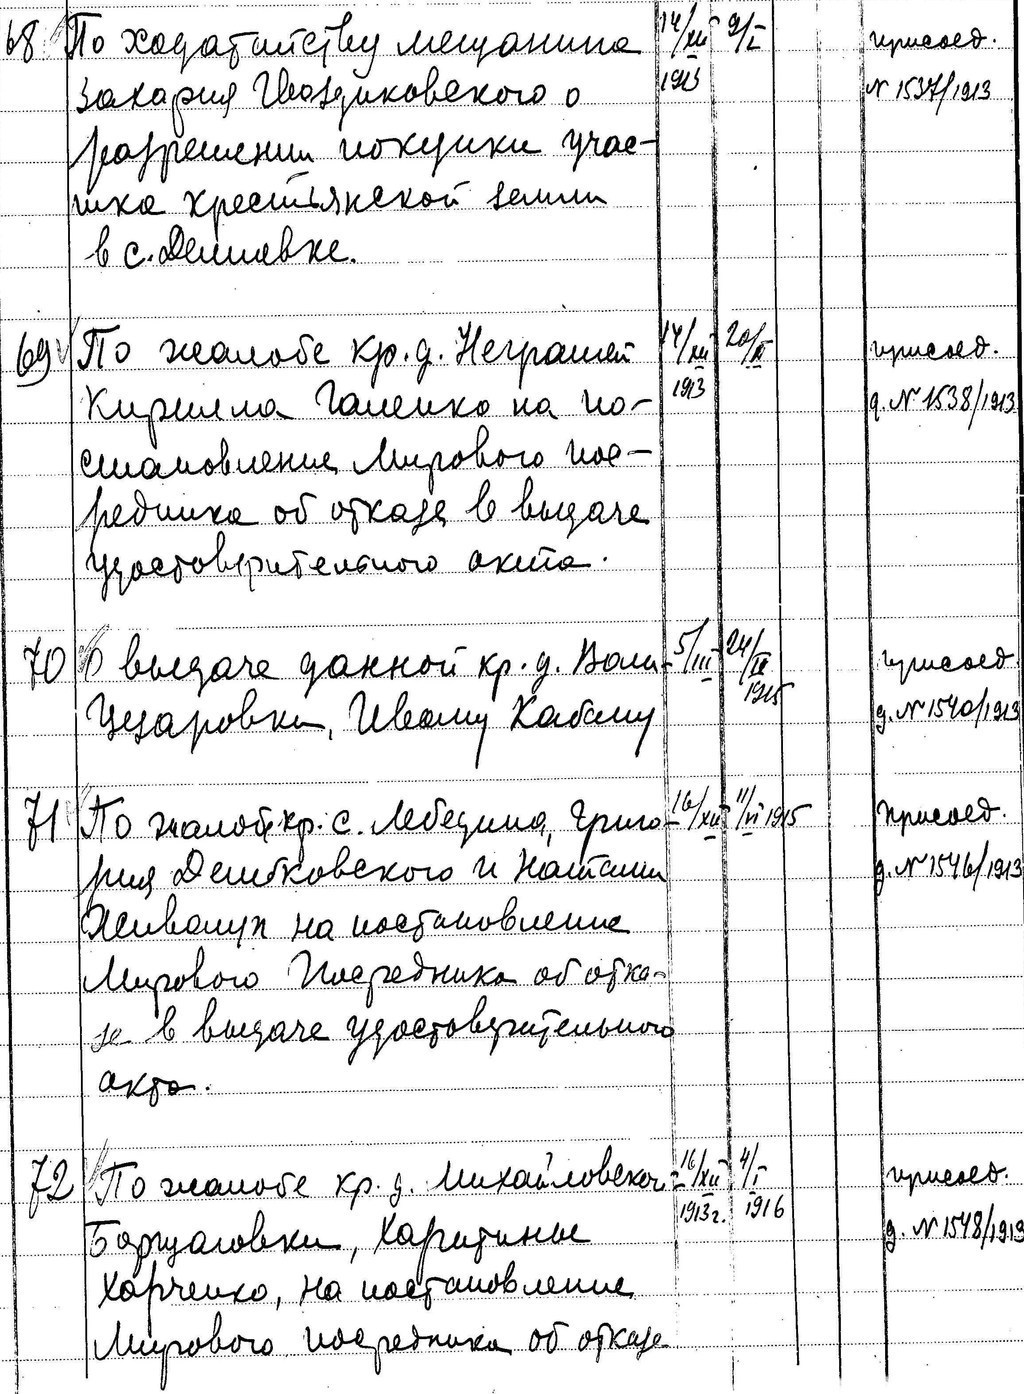 68 По ходатайству мещанина 14/XII 1913 9/I присоед.
Захария Гвоздиковского о № 1537/1913
разрешении покупки учас-
тка крестьянской земли
в с. Дешевке.
69 По жалобе кр. д. Неграшей 14/XII 20/II присоед.
Кирилла Галенко на по- 1913 д. № 1538/1913
становление Мирового пос-
редника об отказе в выдаче
удостоверительного акта.
70 О выдаче данной кр. д. 5/III 24/IX присоед.
Цезаровки, Ивану Кабану 1915 д. № 1540/1913
71 По жалобе кр. с. Лебедина, Григо- 16/XII 11/VI 1915 присоед.
рия Дешковского и Наталии д. № 1546/1913
на постановление
Мирового Посредника об отка-
зе в выдаче удостоверительного
акта.
72 По жалобе кр. д. Михайловской 16/XII 4/I присоед.
Борщаговки, Харитины 1913 г. 1916 д. № 1548/1913
Харченко, на постановление
Мирового посредника об отказе